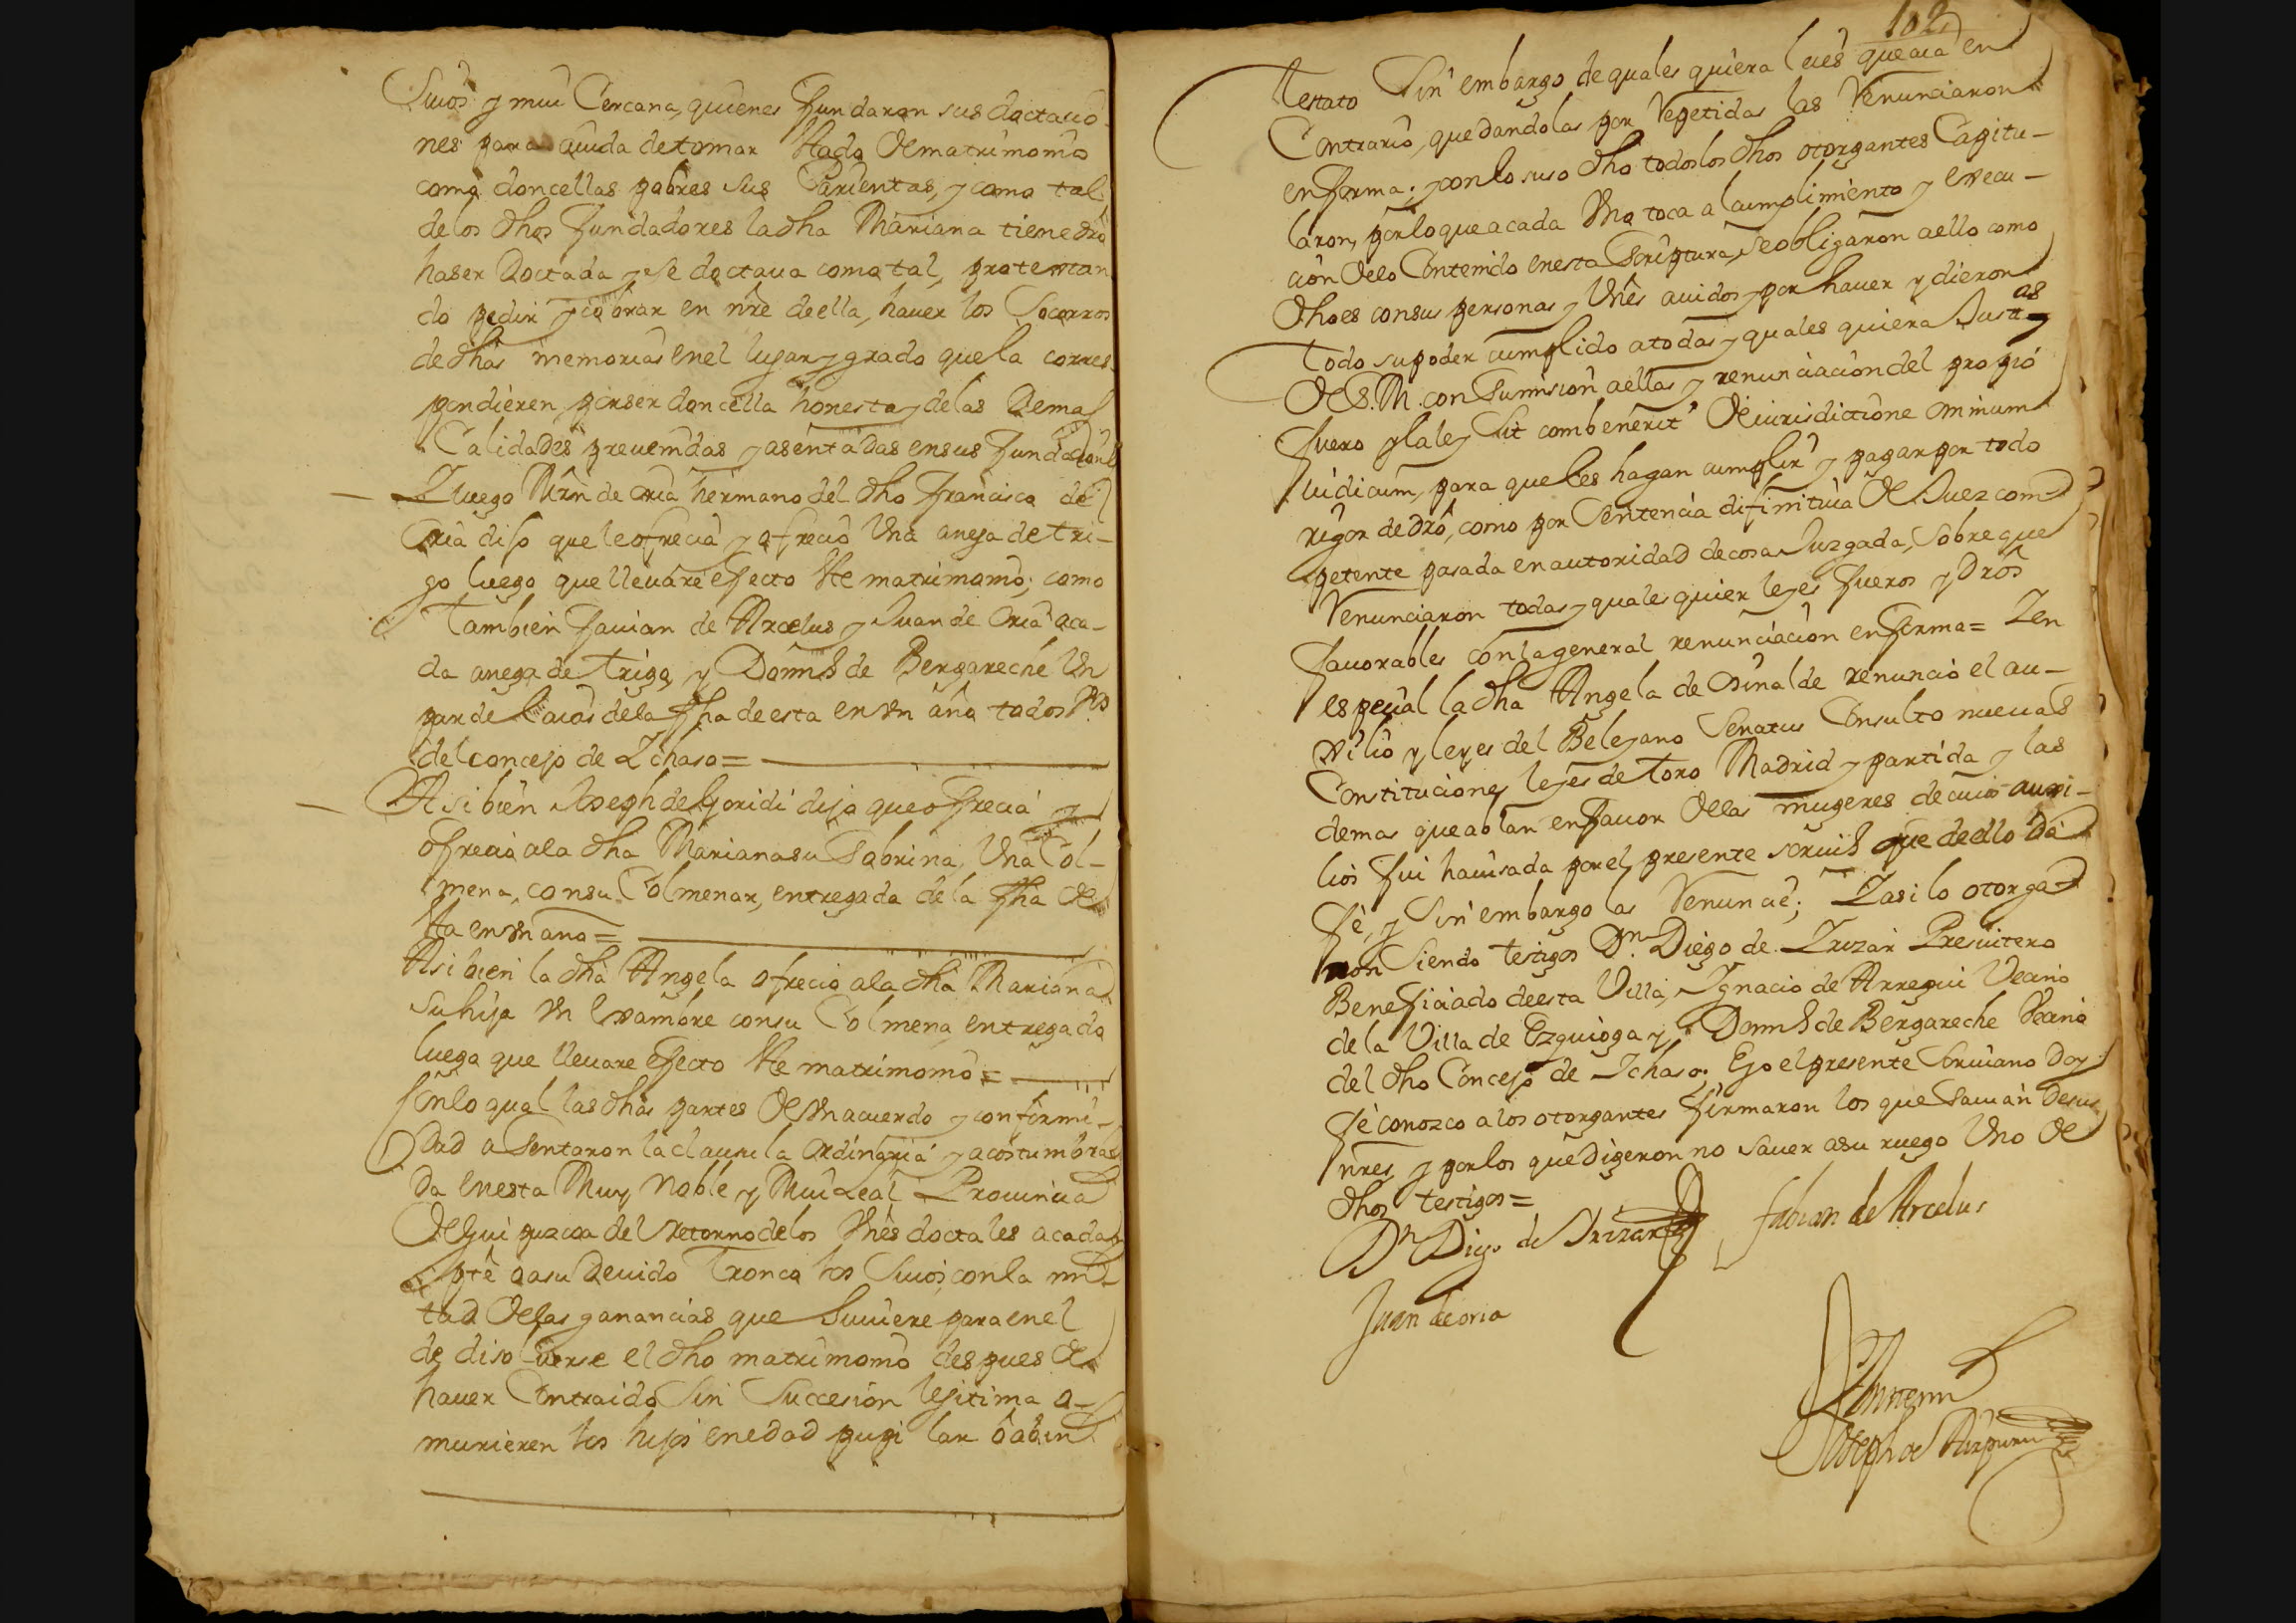 Suios y mui Cercana, quienes fundaron sus doctacio-
nes para aiuda de tomar estado de matrimonio
como doncellas pobres sus Parientas, y como tal
de los dhos fundadores la dha Mariana tiene dro
haser Doctada y se doctaua como tal, protestan
do pedir y cobrar en nre de ella, hauer los Socorros
de dhas memorias en el lugar y grado que la corres-
pondieren, por ser doncella honesta y de las Demas
Calidades preuenidas y asentadas en sus fundaciones
Luego Mrn de Oria hermano del dho Francisco de
Oria dijo que le ofrecia y ofrecio Una anega de tri-
go luego que lleuare efecto este matrimonio; como
Tambien fauian de Arcelus y Juan de Oria aca-
da anega de trigo, y Domins de Bergareche Un
par de de la fha de esta en un año todos
del concejo de Ichaso =
Asi bien Joseph de Goridi dijo que ofrecia y
ofrecio a la dha Mariana su Sobrina, Una Col-
mena, con su Colmenar, entregada de la fha de
esta en un ano =
Asi bien la dha Angela ofrecio a la dha Mariana
su hija Un enxambre con su Colmena, entregado
luego que lleuare efecto este matrimonio =
Con lo qual las dhas partes de Un acuerdo y conformi-
dad asentaron la clausula ordinaria y acostumbra-
da en esta Muy Noble y Mui Leal Prouincia
de Guipuzcoa del retorno de los Vnes doctales a cada
pte a su deuido Tronco los Suios, con la mi-
tad de las ganancias que huuiere para en el
de disoluerse el dho matrimonio despues de
hauer Contraido sin Succesion lejitima o
murieren los hijos en edad pupilar o abin
102
testato Sin embargo de quales quiera leies que aia en
Contrario, quedandolas por repetidas las renunciaron
en forma; y con lo suso dho todos los dhos otorgantes Capitu-
laron, por lo que a cada Uno toca al cumplimiento y execu-
cion de lo Contenido en esta Scriptura, se obligaron a ello como
dho es con sus personas y Vnes auidos y por hauer y dieron
Todo su poder cumplido a todas y quales quiera Justas
de S. M. con Sumision a ellas y renunciacion del propio
fuero y la ley Sit combenerit de iurisdictione omnium
iudicum, para que les hagan cumplir y pagar por todo
rigor de dro, como por Sentencia difinitiua de Juez com-
petente pasada en autoridad de cosa Juzgada, Sobre que
renunciaron todas y quales quier leyes fueros y dros
fauorables con la general renunciacion en forma = Y en
especial la dha Angela de renuncio el au-
xilio y leyes del Beleyano Senatus Consulto nueuas
Constituciones leyes de Toro Madrid y partida y las
demas que ablan en fauor de las mugeres de cuio auxi-
lios fui hauisada por el presente scriuo que de ello da
fe, y Sin embargo las renuncie; Y asi lo otorga-
ron Siendo testigos Dn Diego de Irizar Presuitero
Beneficiado de esta Villa, Ignacio de Arregui Vecino
de la Villa de Ezquioga y Domins de Bergareche Vecino
del dho Concejo de Ichaso; E yo el presente Scriuano doy
fe conozco a los otorgantes firmaron los que Sauian de sus
nres, y por los que digeron no sauer a su ruego Uno de
dhos testigos =
Dn Diego de Irizar
fabian de Arcelus
Juan de oria
Ante mi
Joseph de Aizpuru